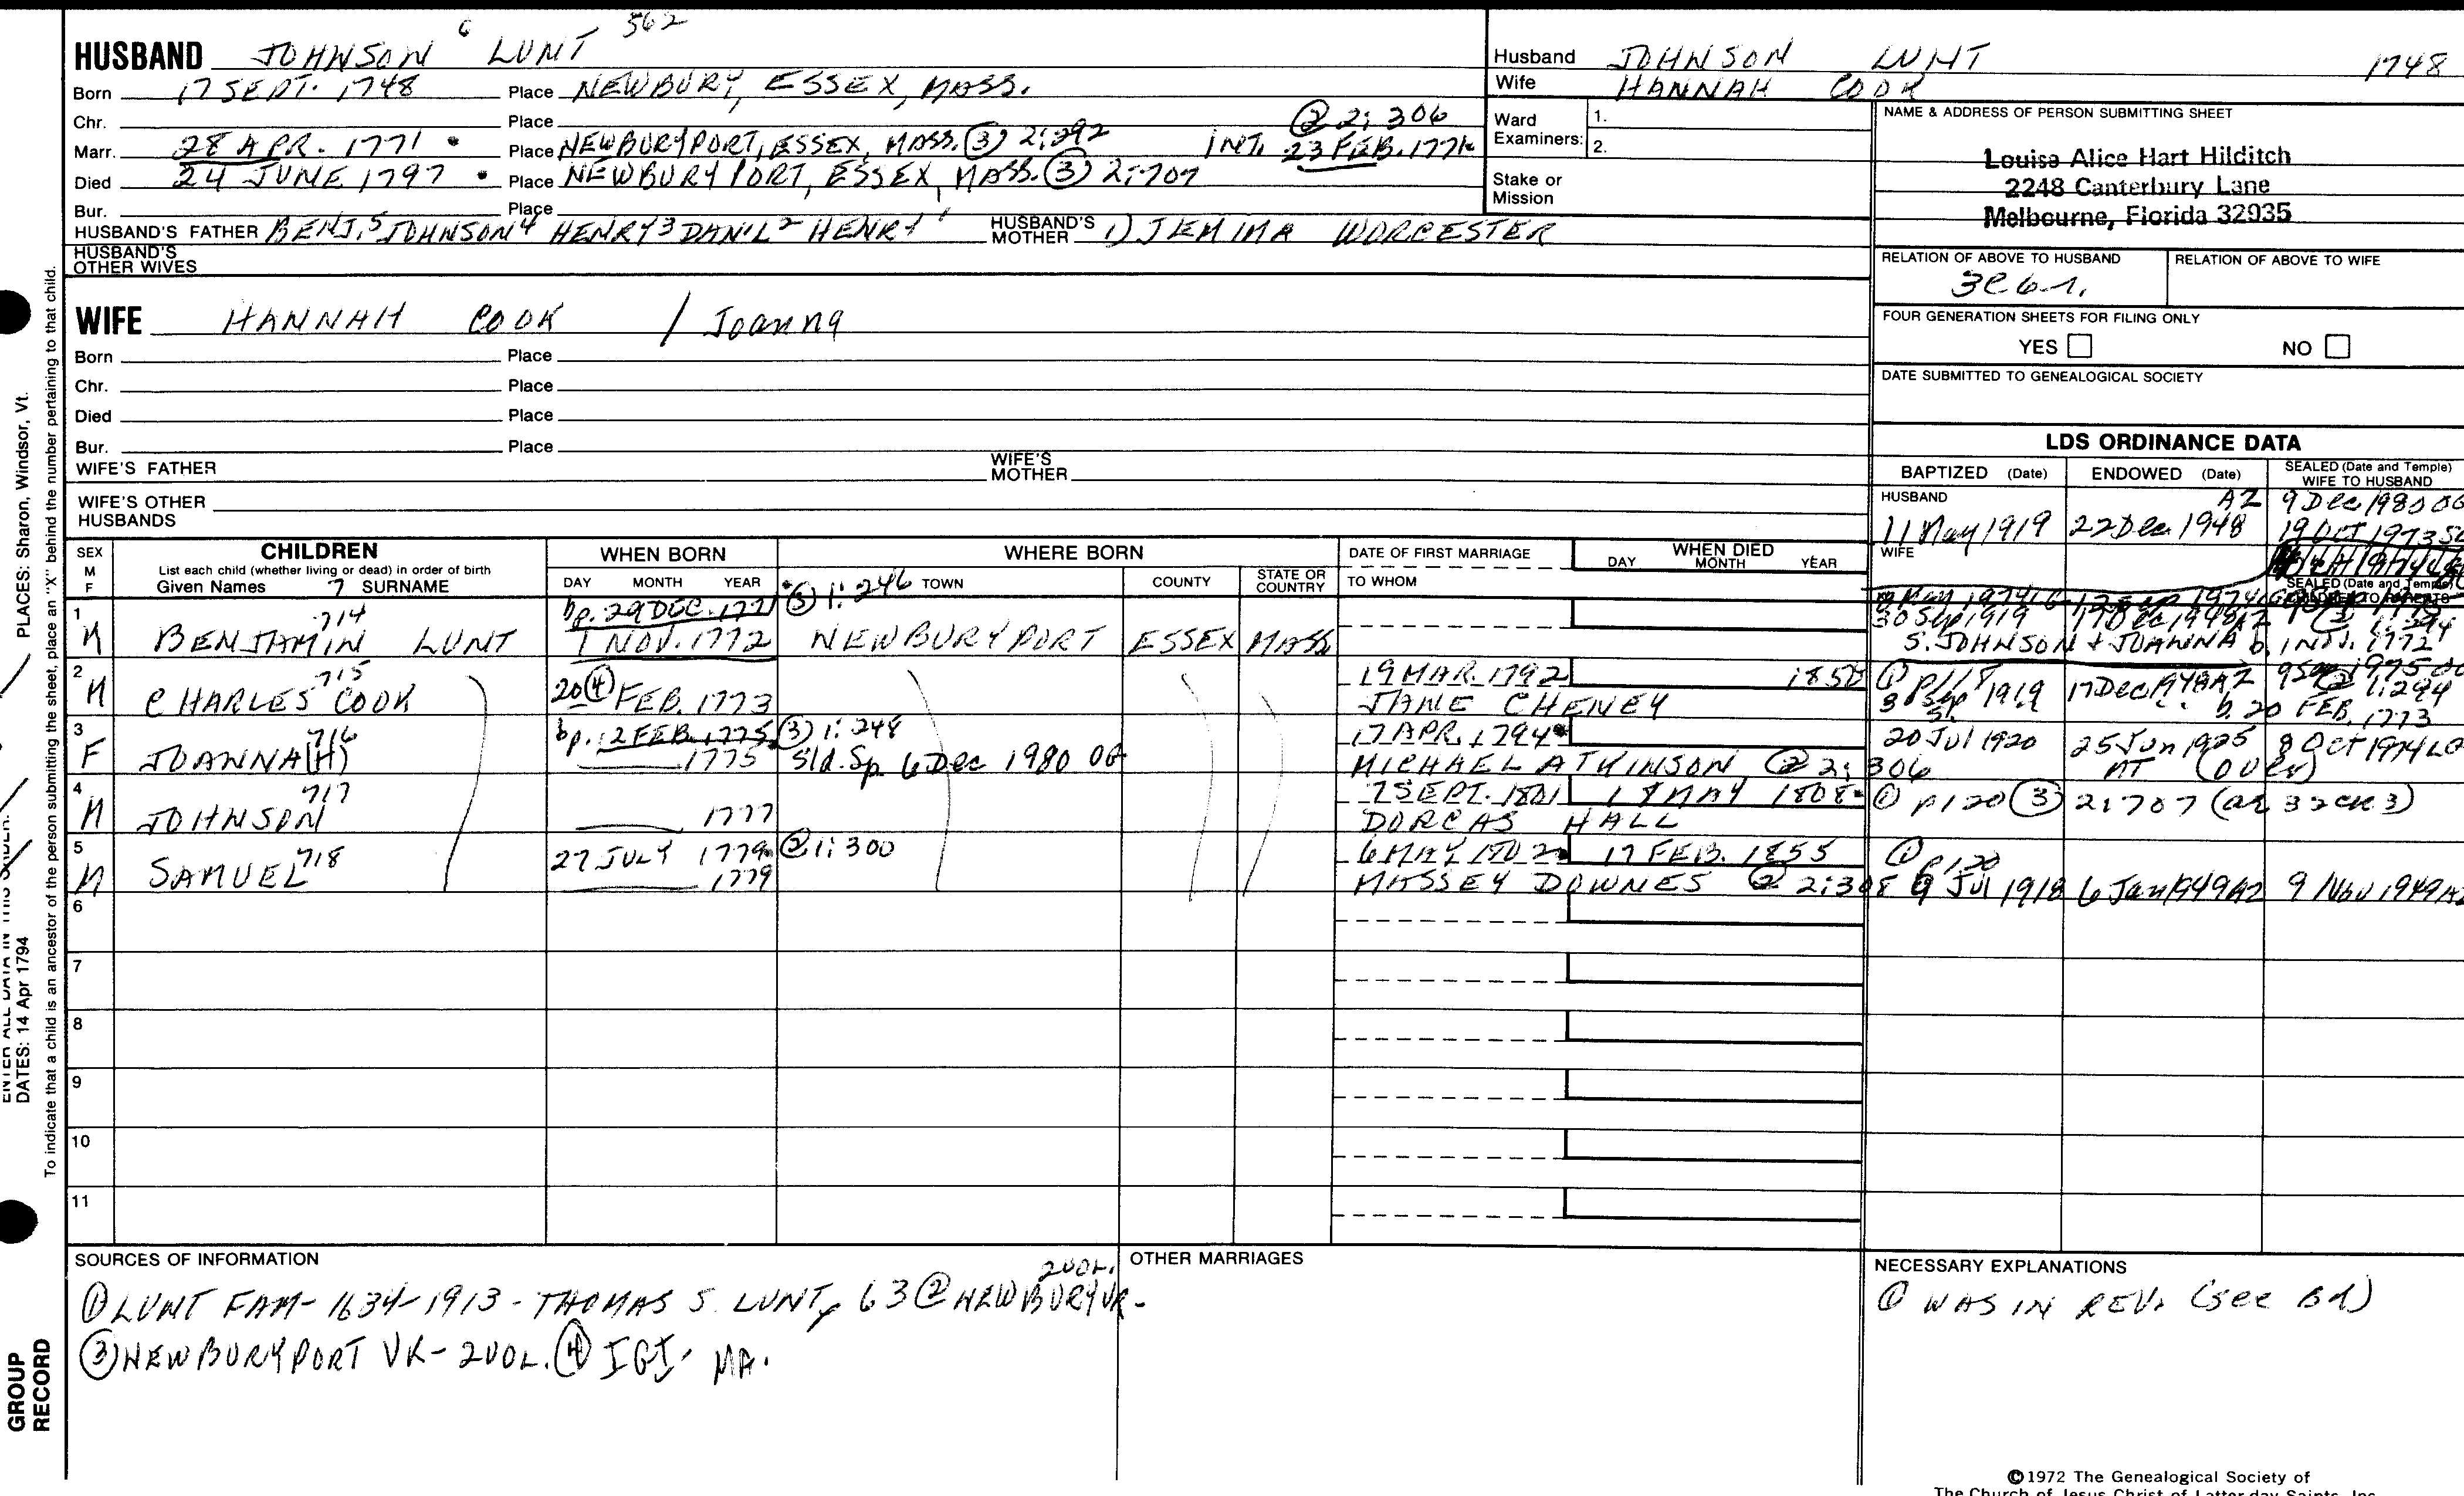 HUSBAND JOHNSON 6 LUNT 562
Born 17 SEPT. 1748 Place NEWBURY, ESSEX, MASS.
Chr. Place
Marr. 28 APR. 1771 • Place NEWBURYPORT, ESSEX, MASS. ③ 2:292 INT. 23 FEB. 1771 ② 2:306
Died 24 JUNE 1797 • Place NEWBURYPORT, ESSEX, MASS. ③ 2:707
Bur. Place
HUSBAND'S FATHER BENJ.5 JOHNSON4 HENRY3 DAN'L2 HENRY1 HUSBAND'S MOTHER 1) JEMIMA WORCESTER
HUSBAND'S OTHER WIVES
WIFE HANNAH COOK / Joanna
Born Place
Chr. Place
Died Place
Bur. Place
WIFE'S FATHER WIFE'S MOTHER
WIFE'S OTHER HUSBANDS
Husband JOHNSON LUNT 1748
Wife HANNAH COOK
Ward Examiners: 1.
2.
Stake or Mission
NAME & ADDRESS OF PERSON SUBMITTING SHEET
Louisa Alice Hart Hilditch
2248 Canterbury Lane
Melbourne, Florida 32935
RELATION OF ABOVE TO HUSBAND RELATION OF ABOVE TO WIFE
3C6r.
FOUR GENERATION SHEETS FOR FILING ONLY
YES NO
DATE SUBMITTED TO GENEALOGICAL SOCIETY
LDS ORDINANCE DATA
BAPTIZED (Date) ENDOWED (Date) SEALED (Date and Temple) WIFE TO HUSBAND
HUSBAND AZ 9 Dec 1980 OG
11 May 1919 22 Dec 1948 19 OCT 1973 SL
WIFE
SEALED (Date and Temple) CHILDREN TO PARENTS
SEX M F CHILDREN WHEN BORN WHERE BORN DATE OF FIRST MARRIAGE WHEN DIED
List each child (whether living or dead) in order of birth
Given Names 7 SURNAME DAY MONTH YEAR TOWN COUNTY STATE OR COUNTRY TO WHOM DAY MONTH YEAR
1 714 bp. 29 DEC. 1771 ③ 1:246 30 Sep 1919 17 Dec 1948 AZ ② 1:294
M BENJAMIN LUNT 1 NOV. 1772 NEWBURYPORT ESSEX MASS S. JOHNSON + JOANNA b. 1 NOV. 1772
2 715 19 MAR. 1792 ① p118 17 Dec 1948 AZ 9 Sep 1975 OG ② 1:294
M CHARLES COOK 20 ④ FEB. 1773 JANE CHENEY 1919 b. 20 FEB. 1773
3 716 bp. 12 FEB. 1775 ③ 1:248 17 APR. 1794 20 Jul 1920 25 Jun 1925 8 OCT 1974 LG
F JOANNA(H) 1775 Sld. Sp. 6 Dec 1980 OG MICHAEL ATKINSON ② 2:306 (OVER)
4 717 7 SEPT. 1801 18 MAY 1808 ① p120 ③ 2:707 (ae 32 CR3)
M JOHNSON 1777 DORCAS HALL
5 718 27 JULY 1779 ② 1:300 6 MAY 1802 17 FEB. 1855 ① p120
M SAMUEL 1779 MASSEY DOWNES ② 2:308 9 Jul 1918 6 Jan 1949 AZ 9 Nov 1949 AZ
6
7
8
9
10
11
SOURCES OF INFORMATION
① LUNT FAM- 1634-1913 - THOMAS S. LUNT, 63 ② NEWBURY VR- 2 VOL.
③ NEWBURYPORT VR- 2 VOL. ④ IGI- MA.
OTHER MARRIAGES
NECESSARY EXPLANATIONS
① WAS IN REV. (see Bd)
©1972 The Genealogical Society of
The Church of Jesus Christ of Latter-day Saints, Inc.
PLACES: Sharon, Windsor, Vt.
ENTER ALL DATA IN THIS ORDER:
DATES: 14 Apr 1794
To indicate that a child is an ancestor of the person submitting the sheet, place an "X" behind the number pertaining to that child.
GROUP RECORD